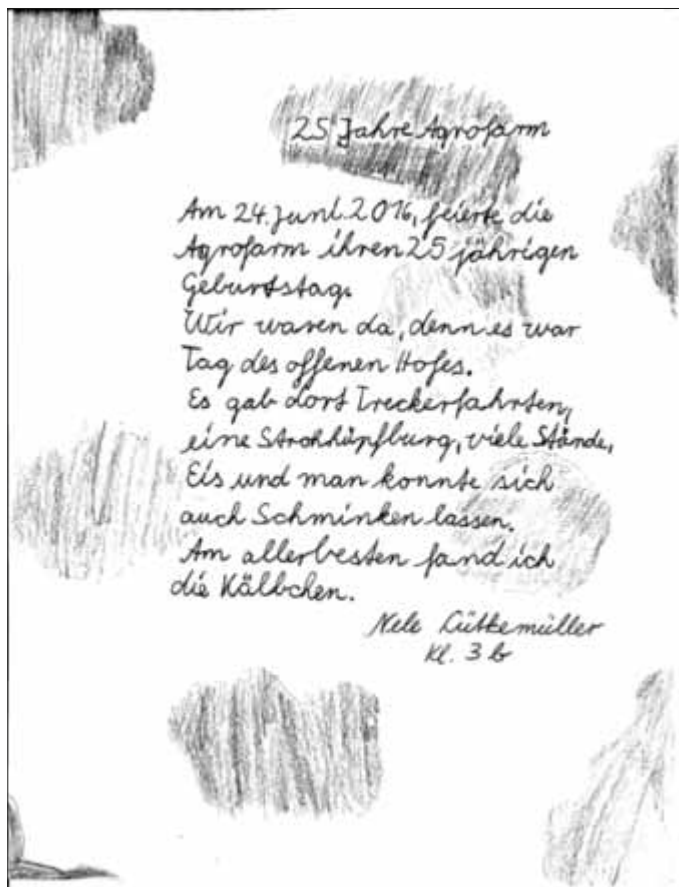 25 Jahre Agrofarm
Am 24. Juni. 2016, feierte die
Agrofarm ihren 25 jährigen
Geburtstag.
Wir waren da, denn es war
Tag des offenen Hofes.
Es gab dort Treckerfahrten,
eine Strohhüpfburg, viele Stände,
Eis und man konnte sich
auch Schminken lassen.
Am allerbesten fand ich
die Kälbchen.
Nele Lüttemüller
Kl. 3b